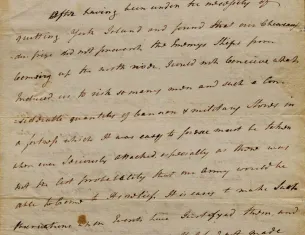 After having been under the necessity of
quitting York Island and found that our Cheveaux
de frize did not prevent the Enemys Ships from
coming up the north river. I could not conceive what
Induced us to risk so many men and such a Con-
siderable quantities of Cannon & military Stores in
a fortress which it was easy to foresee must be taken
when ever Seriously attacked especially as there was
not the least probability that our Army would be
able to come to its relief. It is easy to make such
Events have
made